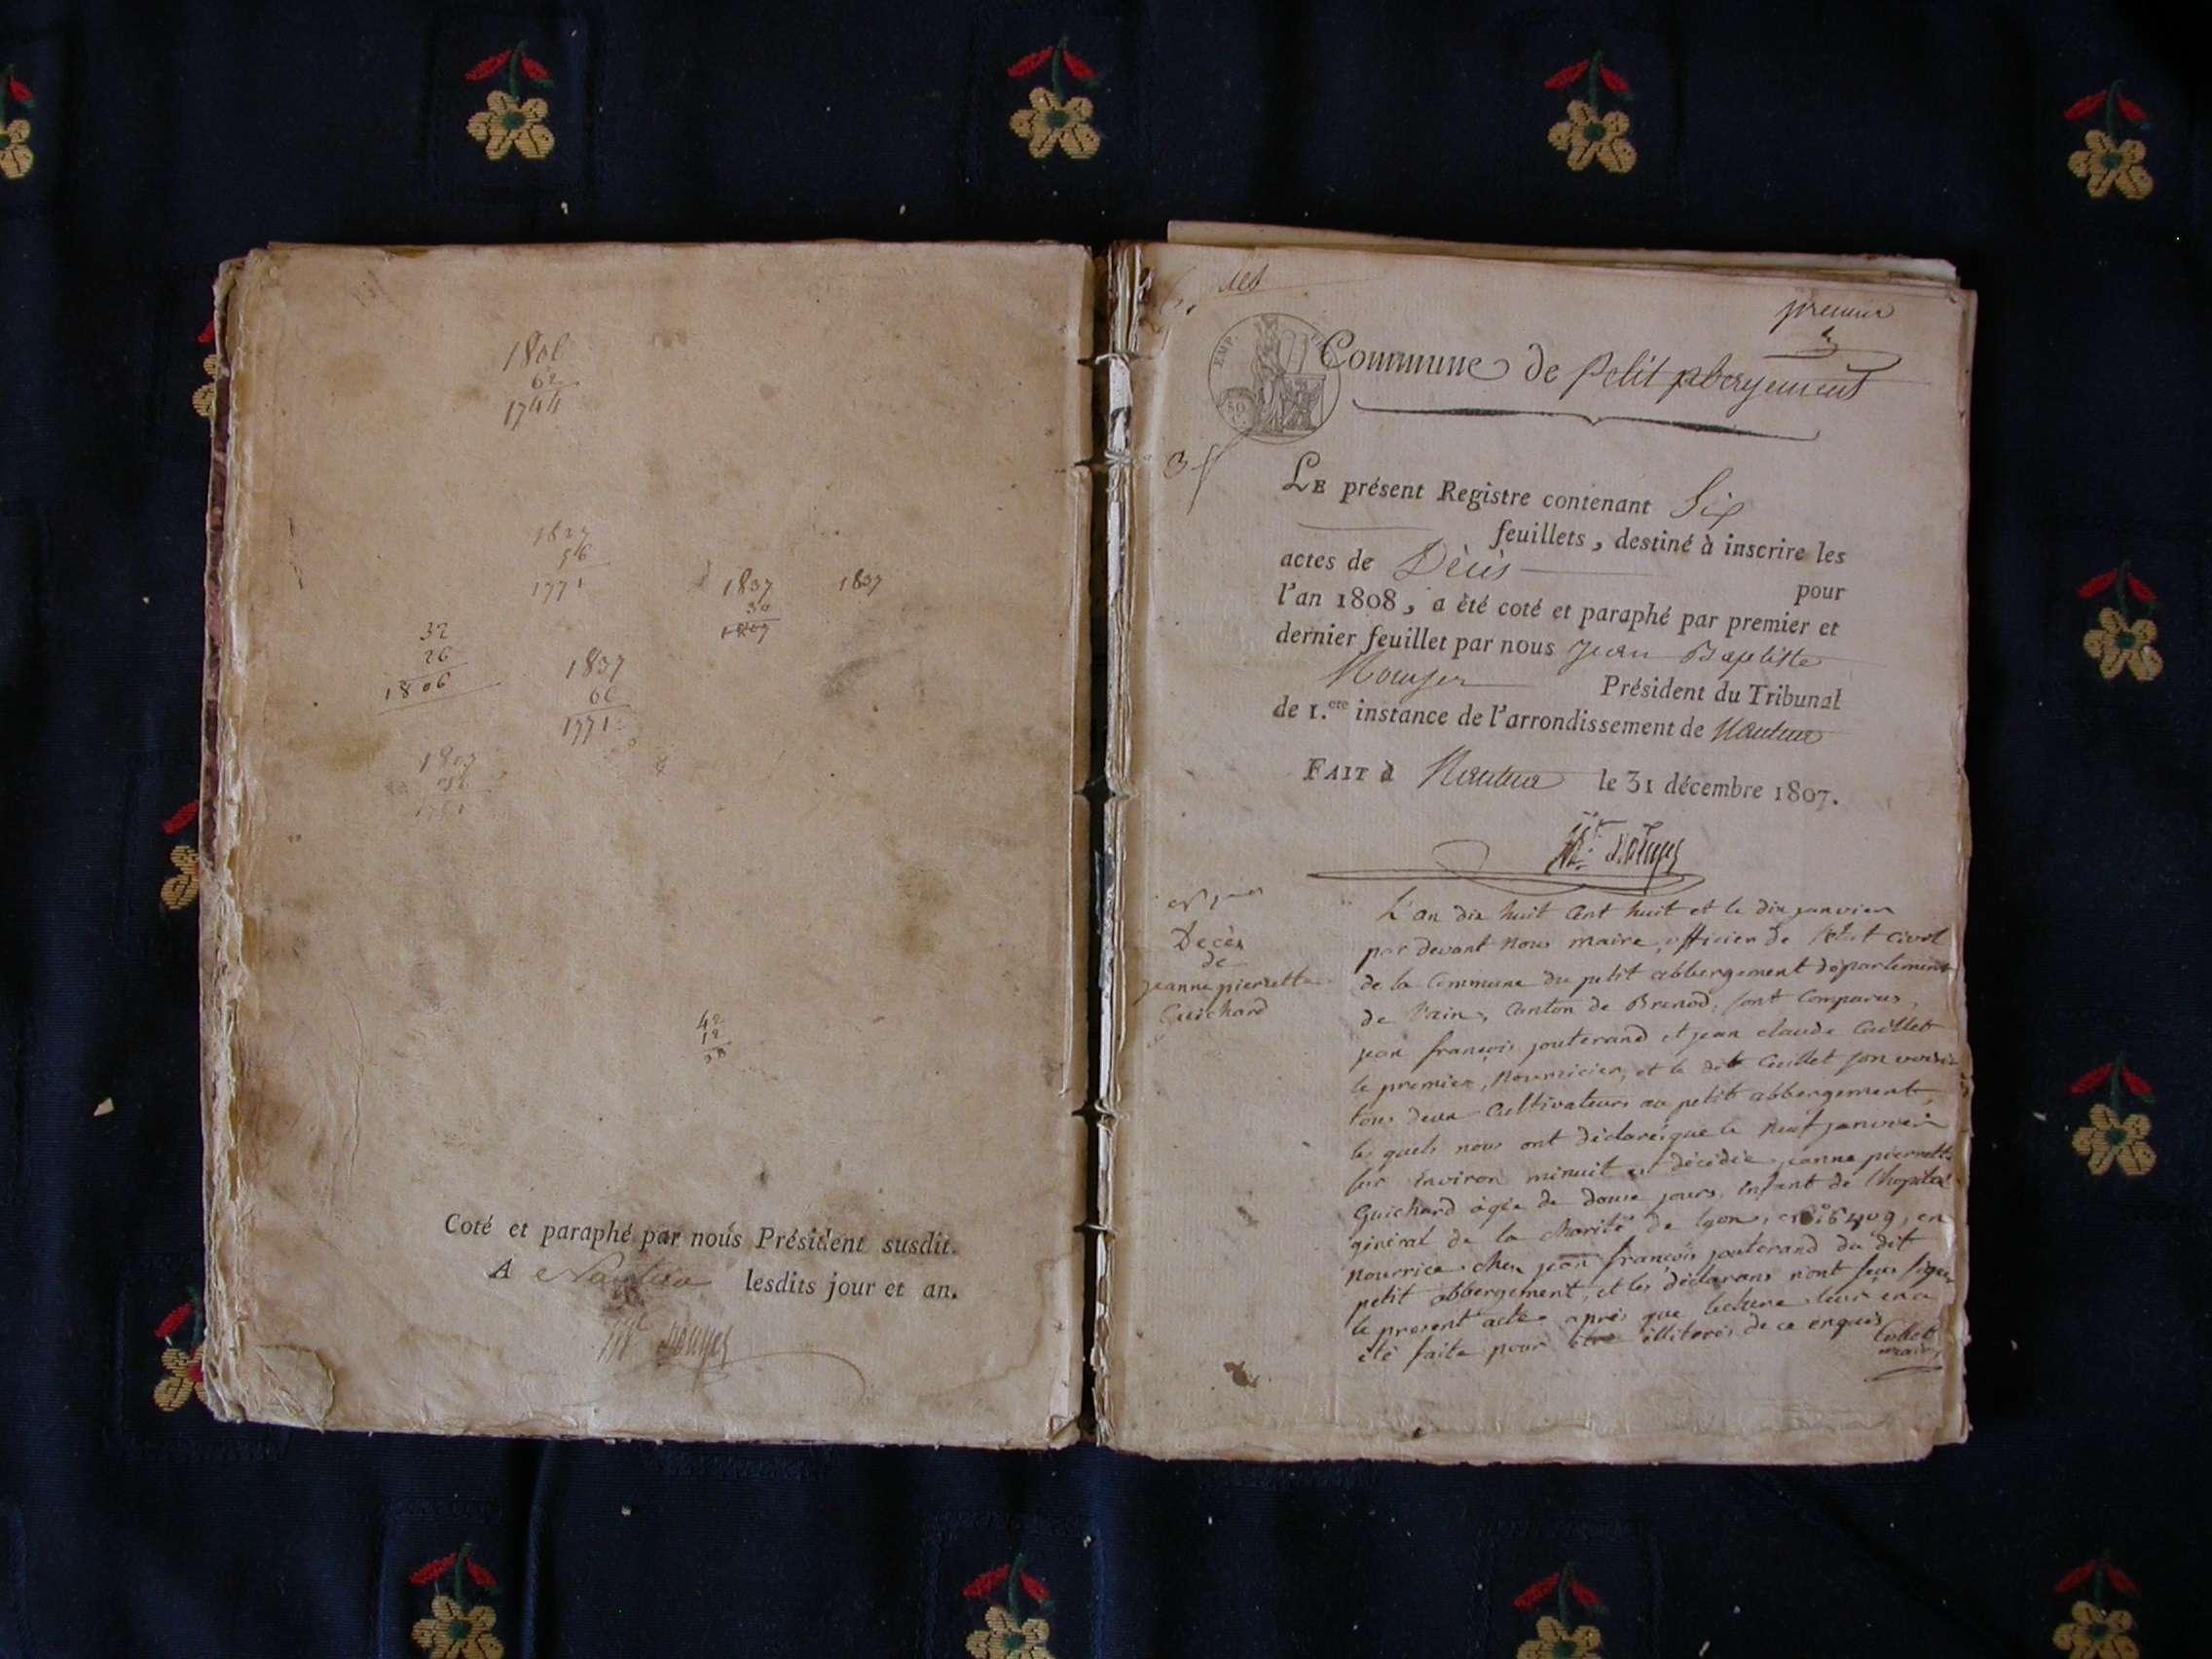 1806
62
1744
1827
56
1771
1837
30
1807
1837
32
26
1806
1837
66
1771
42
12
Coté et paraphé par nous Président susdit.
A Nantua lesdits jour et an.
premier
EMP.
50
Commune de Petit abergement
LE présent Registre contenant Six
feuillets, destiné à inscrire les
actes de Décès
pour
l'an 1808, a été coté et paraphé par premier et
dernier feuillet par nous Jean Baptiste
Président du Tribunal
de 1.ere instance de l'arrondissement de Nantua
FAIT à Nantua le 31 décembre 1807.
Decès
de
jeanne pierrette
Guichard
L'an dix huit cent huit et le dix janvier
par devant nous maire officier de l'etat civil
de la Commune du petit abbergement département
de l'ain, Canton de Brenod, sont Comparus,
jean françois jouterand et jean claude Caillet
le premier, Nourricier, et le dit Caillet son voisin
tous deux Cultivateurs au petit abbergement,
les quels nous ont déclaré que le neuf janvier
sur environ minuit est décédée jeanne pierrette
Guichard agée de douze jours, enfant de l'hopital
général de la charité de lyon, 6409, en
nourrice chez jean françois jouterand du dit
petit abbergement, et les déclarans n'ont seus signer
le present acte après que lecture leur en a
été faite pour être illiterés de ce enquis
maire